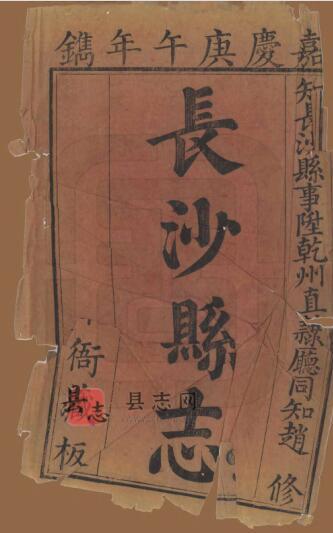 嘉慶庚午年鐫
知長沙縣事陞乾州直隸廳同知趙 修
長沙縣志
衙
板
县志
县志网